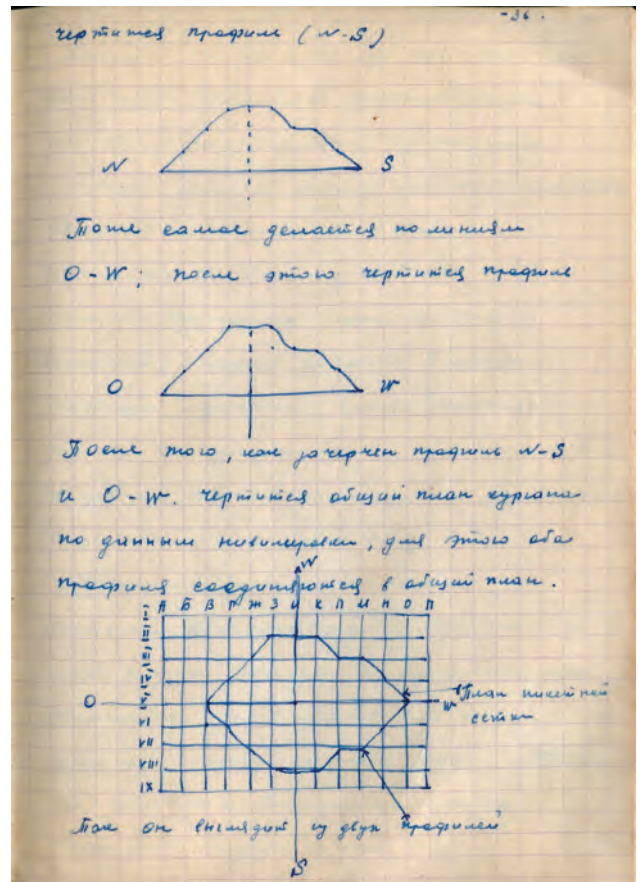 -36.
чертится профиль (N-S)
N S
Тоже самое делается по линиям
O-W; после этого чертится профиль
O W
После того, как зачерчен профиль N-S
и O-W. чертится общий план кургана
по данным нивилировки, для этого оба
профиля соединяются в общий план.
N
А Б В Г Ж З И К Л М Н О П
I II III IV V
O W
План пикетной
сетки
VI
VII
VIII
IX
Так он выглядит из двух профилей
S